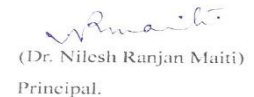 (Dr. Nilesh Ranjan Maiti)
Principal.